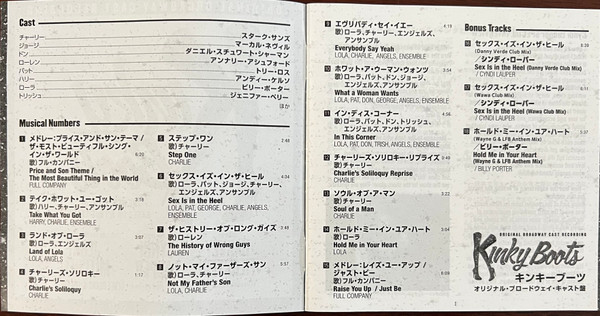 Cast
チャーリー スターク・サンズ
ジョージ マーカル・ネヴィル
ドン ダニエル・スチュワート・シャーマン
ローレン アンナリー・アシュフォード
パット トリー・ロス
ハリー アンディー・ケルソ
ローラ ビリー・ポーター
トリッシュ ジェニファー・ペリー
ほか
Musical Numbers
1 メドレー:プライス・アンド・サン・テーマ /
ザ・モスト・ビューティフル・シング・
イン・ザ・ワールド 6:20
歌)フル・カンパニー
Price and Son Theme /
The Most Beautiful Thing in the World
FULL COMPANY
2 テイク・ホワット・ユー・ゴット 3:18
歌)ハリー、チャーリー、アンサンブル
Take What You Got
HARRY, CHARLIE, ENSEMBLE
3 ランド・オブ・ローラ 3:07
歌)ローラ、エンジェルズ
Land of Lola
LOLA, ANGELS
4 チャーリーズ・ソリロキー 1:12
歌)チャーリー
Charlie's Soliloquy
CHARLIE
5 ステップ・ワン 2:48
歌)チャーリー
Step One
CHARLIE
6 セックス・イズ・イン・ザ・ヒール 4:34
歌)ローラ、パット、ジョージ、チャーリー、
エンジェルズ、アンサンブル
Sex Is in the Heel
LOLA, PAT, GEORGE, CHARLIE, ANGELS,
ENSEMBLE
7 ザ・ヒストリー・オブ・ロング・ガイズ 3:48
歌)ローレン
The History of Wrong Guys
LAUREN
8 ノット・マイ・ファーザーズ・サン 5:57
歌)ローラ、チャーリー
Not My Father's Son
LOLA, CHARLIE
9 エヴリバディ・セイ・イエー 4:19
歌)ローラ、チャーリー、エンジェルズ、
アンサンブル
Everybody Say Yeah
LOLA, CHARLIE, ANGELS, ENSEMBLE
10 ホワット・ア・ウーマン・ウォンツ 3:54
歌)ローラ、パット、ドン、ジョージ、
エンジェルズ、アンサンブル
What a Woman Wants
LOLA, PAT, DON, GEORGE, ANGELS, ENSEMBLE
11 イン・ディス・コーナー 4:06
歌)ローラ、パット、ドン、トリッシュ、
エンジェルズ、アンサンブル
In This Corner
LOLA, PAT, DON, TRISH, ANGELS, ENSEMBLE
12 チャーリーズ・ソリロキー・リプライズ
歌)チャーリー
Charlie's Soliloquy Reprise
CHARLIE
13 ソウル・オブ・ア・マン 3:22
歌)チャーリー
Soul of a Man
CHARLIE
14 ホールド・ミー・イン・ユア・ハート 3:04
歌)ローラ
Hold Me in Your Heart
LOLA
15 メドレー:レイズ・ユー・アップ /
ジャスト・ビー 6:09
歌)フル・カンパニー
Raise You Up / Just Be
FULL COMPANY
Bonus Tracks
16 セックス・イズ・イン・ザ・ヒール 6:38
(Danny Verde Club Mix)
/ シンディ・ローパー
Sex Is in the Heel (Danny Verde Club Mix)
/ CYNDI LAUPER
17 セックス・イズ・イン・ザ・ヒール
(Wawa Club Mix)
/ シンディ・ローパー
Sex Is in the Heel (Wawa Club Mix)
/ CYNDI LAUPER
18 ホールド・ミー・イン・ユア・ハート
(Wayne G & LFB Anthem Mix)
/ ビリー・ポーター
Hold Me in Your Heart
(Wayne G & LFB Anthem Mix)
/ BILLY PORTER
ORIGINAL BROADWAY CAST RECORDING
Kinky Boots
キンキーブーツ
オリジナル・ブロードウェイ・キャスト盤